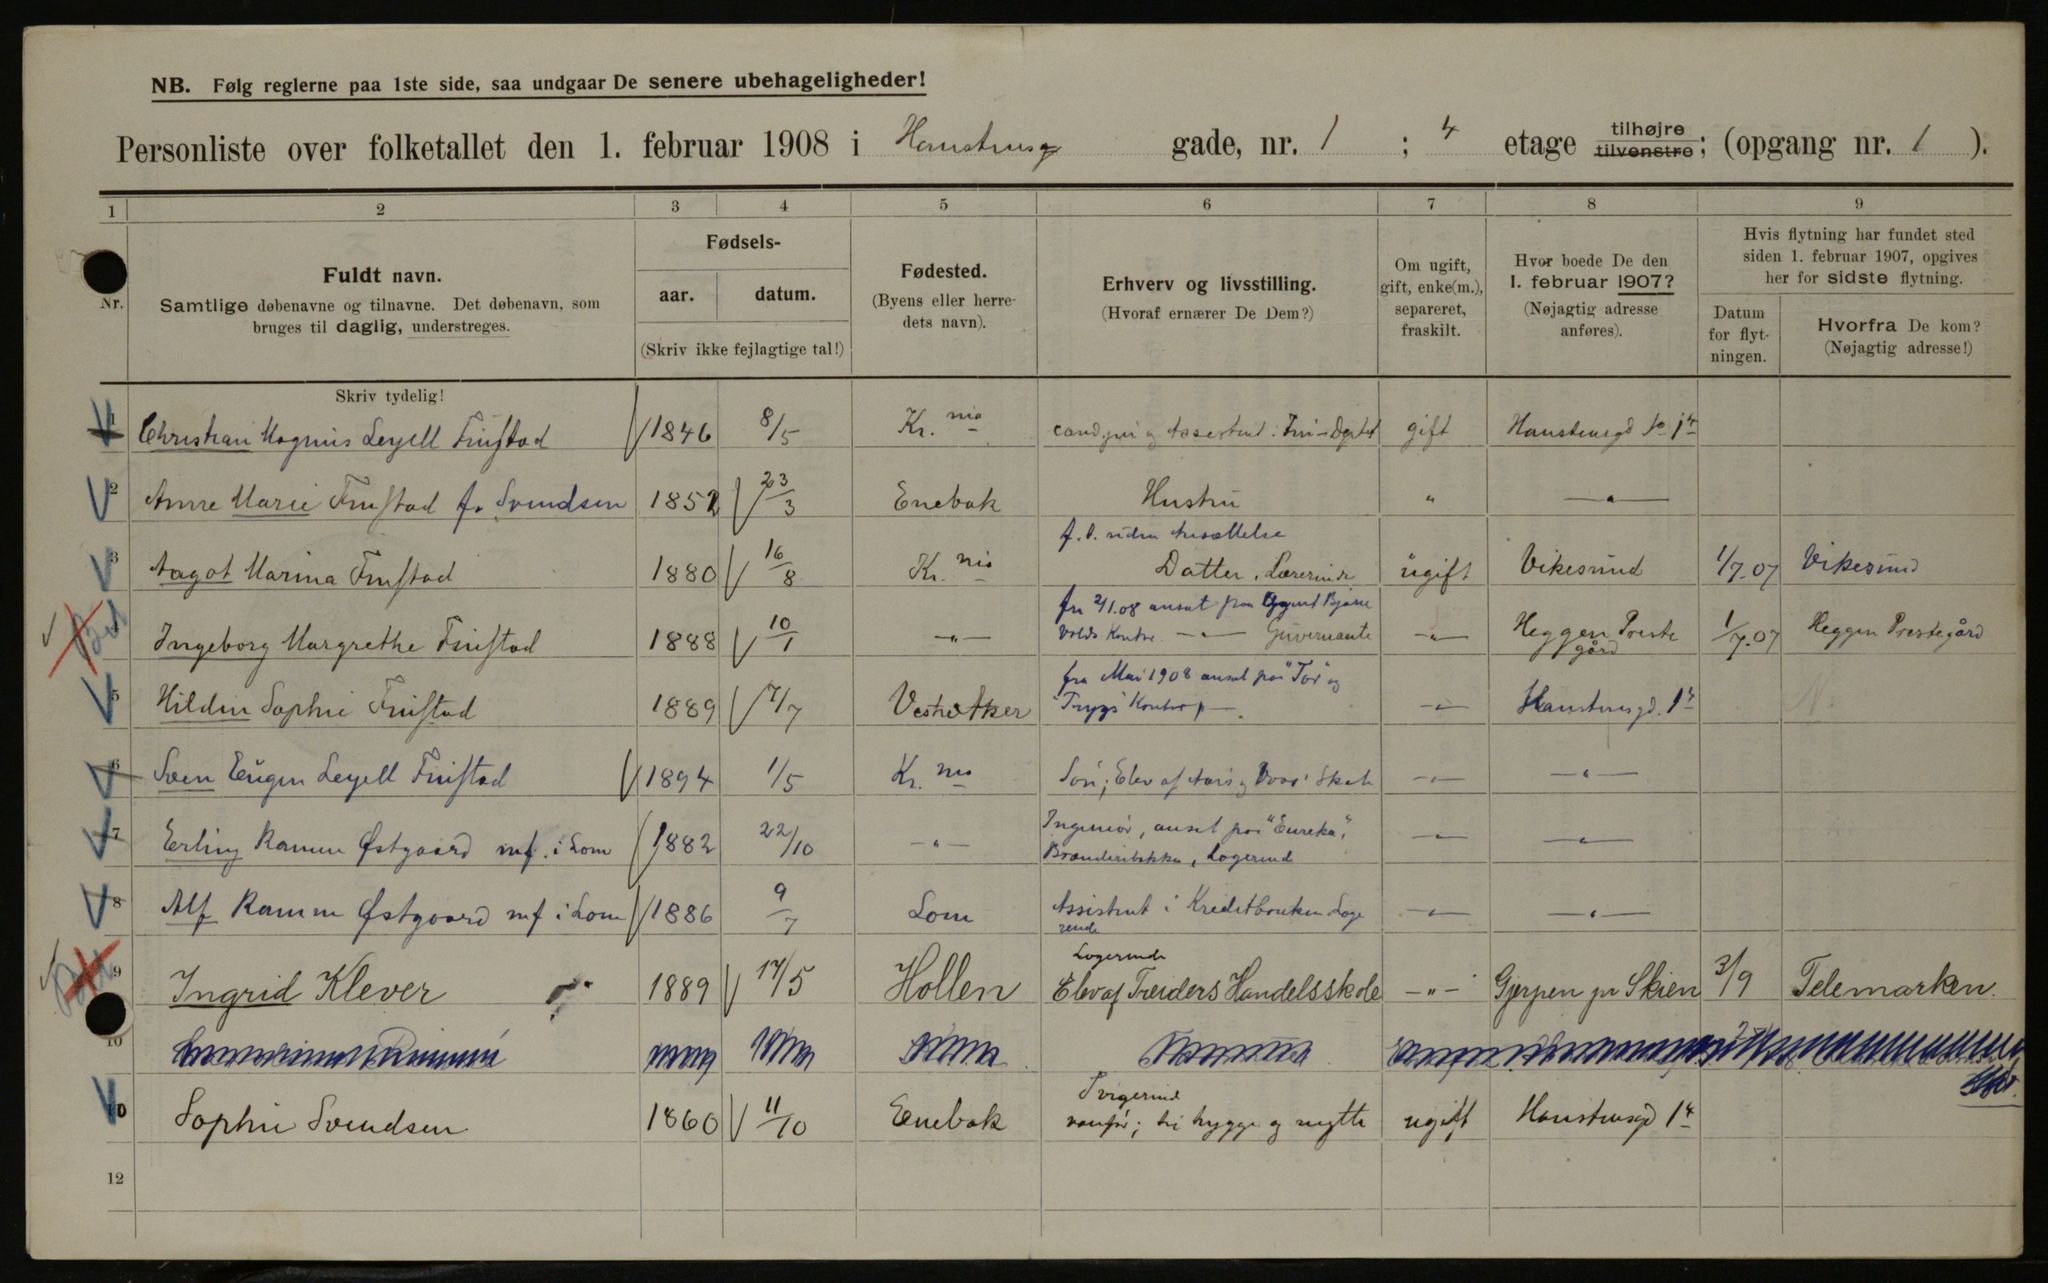 NB. Følg reglerne paa 1ste side, saa undgaar De senere ubehageligheder!
Personliste over folketallet den 1. februar 1908 i gade, nr. 1 ; 4 etage tilhøjre tilvenstre; (opgang nr. 1 ).
1 2 3 4 5 6 7 8 9
Nr.
Fuldt navn.
Samtlige døbenavne og tilnavne. Det døbenavn, som
bruges til daglig, understreges.
Skriv tydelig!
Fødsels-
aar. datum.
(Skriv ikke fejlagtige tal!)
Fødested.
(Byens eller herre-
dets navn).
Erhverv og livsstilling.
(Hvoraf ernærer De Dem?)
Om ugift,
gift, enke(m.),
separeret,
fraskilt.
Hvor boede De den
1. februar 1907?
(Nøjagtig adresse
anføres).
Hvis flytning har fundet sted
siden 1. februar 1907, opgives
her for sidste flytning.
Datum
for flyt-
ningen.
Hvorfra De kom?
(Nøjagtig adresse!)
1 Christian Magnus Leyell Finstad 1846 8/5 Kr.nia cand. jur og Assistent i gift
2 Anne Marie Finstad f. Svendsen 1852 23/3 Enebak Hustru " —"—
f. t. uden Ansættelse
3 Aagot Marina Finstad 1880 16/8 Kr.nia Datter, Lærerinde ugift Vikesund 1/7.07 Vikesund
fra 2/1.08 ansat paa
4 Ingeborg Margrethe Finstad 1888 10/1 —"— Kontor —"— Guvernante —"— Heggen Preste 1/7.07 Heggen Prestegård
gård
fra Mai 1908 ansat paa "Tor" og
5 Hilda Sophie Finstad 1889 7/7 Vestre Aker Kontor —"— 1 4
6 Sven Eugen Leyell Finstad 1894 1/5 Kr.nia Søn; Elev af Aars og Voss' Skole —"— —"—
Ingeniør, ansat paa "Eureka",
7 Erling Ramm Østgaard mf. i Lom 1882 22/10 —"— Logerende —"— —"—
8 Alf Ramm Østgaard mf i Lom 1886 9/7 Lom Assistent i Kreditbanken Loge —"— —"—
rende
Logerende
9 Ingrid Klever 1889 17/5 Hollen Elev af Treiders Handelsskole —"— Gjerpen pr Skien 3/9 Telemarken.
10
Svigerinde
10 Sophie Svendsen 1860 11/10 Enebak vanfør; til hygge og nytte ugift 1 4
12